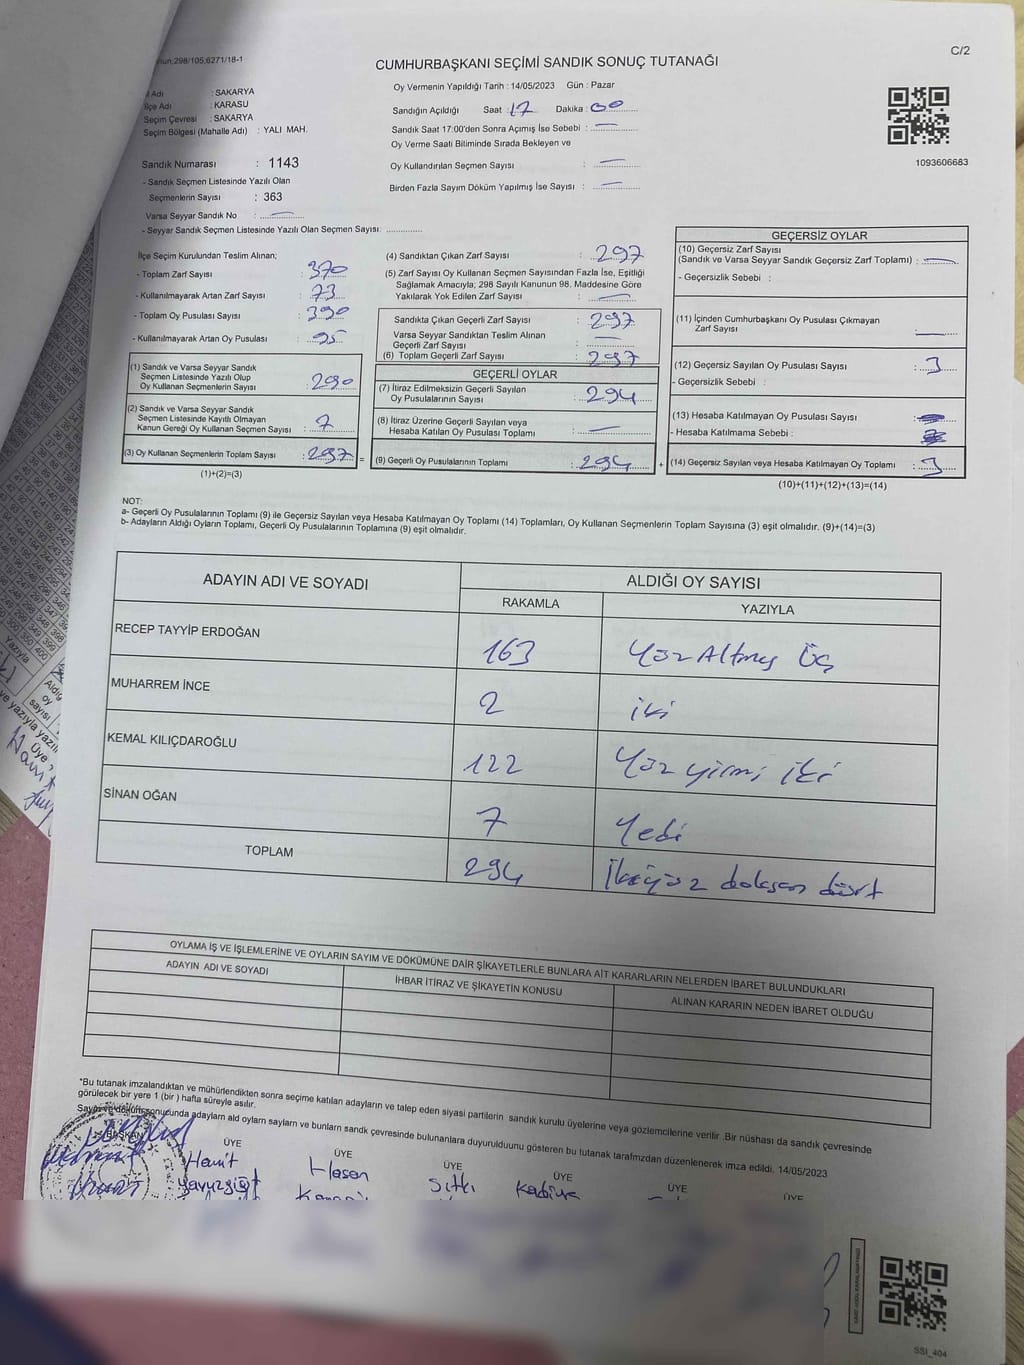 C/2
CUMHURBAŞKANI SEÇİMİ SANDIK SONUÇ TUTANAĞI
298/105;6271/18-1
Adı : SAKARYA
İlçe Adı : KARASU
Seçim Çevresi : SAKARYA
Seçim Bölgesi (Mahalle Adı) : YALI MAH.
Sandık Numarası : 1143
- Sandık Seçmen Listesinde Yazılı Olan
Seçmenlerin Sayısı : 363
Varsa Seyyar Sandık No : —
- Seyyar Sandık Seçmen Listesinde Yazılı Olan Seçmen Sayısı:
Oy Vermenin Yapıldığı Tarih : 14/05/2023 Gün : Pazar
Sandığın Açıldığı Saat : 17 Dakika : 00
Sandık Saat 17:00'den Sonra Açımış İse Sebebi : —
Oy Verme Saati Bitiminde Sırada Bekleyen ve
Oy Kullandırılan Seçmen Sayısı : —
Birden Fazla Sayım Döküm Yapılmış İse Sayısı : —
1093606683
İlçe Seçim Kurulundan Teslim Alınan;
- Toplam Zarf Sayısı : 370
- Kullanılmayarak Artan Zarf Sayısı : 73
- Toplam Oy Pusulası Sayısı : 390
- Kullanılmayarak Artan Oy Pusulası : 95
(1) Sandık ve Varsa Seyyar Sandık
Seçmen Listesinde Yazılı Olup
Oy Kullanan Seçmenlerin Sayısı : 290
(2) Sandık ve Varsa Seyyar Sandık
Seçmen Listesinde Kayıtlı Olmayan
Kanun Gereği Oy Kullanan Seçmen Sayısı : 7
(3) Oy Kullanan Seçmenlerin Toplam Sayısı : 297
(1)+(2)=(3)
(4) Sandıktan Çıkan Zarf Sayısı : 297
(5) Zarf Sayısı Oy Kullanan Seçmen Sayısından Fazla İse, Eşitliği
Sağlamak Amacıyla; 298 Sayılı Kanunun 98. Maddesine Göre
Yakılarak Yok Edilen Zarf Sayısı : —
Sandıkta Çıkan Geçerli Zarf Sayısı : 297
Varsa Seyyar Sandıktan Teslim Alınan
Geçerli Zarf Sayısı : —
(6) Toplam Geçerli Zarf Sayısı : 297
GEÇERLİ OYLAR
(7) İtiraz Edilmeksizin Geçerli Sayılan
Oy Pusulalarının Sayısı : 294
(8) İtiraz Üzerine Geçerli Sayılan veya
Hesaba Katılan Oy Pusulası Toplamı : —
= (9) Geçerli Oy Pusulalarının Toplamı : 294 +
GEÇERSİZ OYLAR
(10) Geçersiz Zarf Sayısı
(Sandık ve Varsa Seyyar Sandık Geçersiz Zarf Toplamı) : —
- Geçersizlik Sebebi :
(11) İçinden Cumhurbaşkanı Oy Pusulası Çıkmayan
Zarf Sayısı : —
(12) Geçersiz Sayılan Oy Pusulası Sayısı : 3
- Geçersizlik Sebebi :
(13) Hesaba Katılmayan Oy Pusulası Sayısı :
- Hesaba Katılmama Sebebi :
(14) Geçersiz Sayılan veya Hesaba Katılmayan Oy Toplamı : 3
(10)+(11)+(12)+(13)=(14)
NOT:
a- Geçerli Oy Pusulalarının Toplamı (9) ile Geçersiz Sayılan veya Hesaba Katılmayan Oy Toplamı (14) Toplamları, Oy Kullanan Seçmenlerin Toplam Sayısına (3) eşit olmalıdır. (9)+(14)=(3)
b- Adayların Aldığı Oyların Toplamı, Geçerli Oy Pusulalarının Toplamına (9) eşit olmalıdır.
ADAYIN ADI VE SOYADI ALDIĞI OY SAYISI
RAKAMLA YAZIYLA
RECEP TAYYİP ERDOĞAN 163 Yüz Altmış Üç
MUHARREM İNCE 2 iki
KEMAL KILIÇDAROĞLU 122 Yüz yirmi iki
SİNAN OĞAN 7 Yedi
TOPLAM 294 İkiyüz doksan dört
OYLAMA İŞ VE İŞLEMLERİNE VE OYLARIN SAYIM VE DÖKÜMÜNE DAİR ŞİKAYETLERLE BUNLARA AİT KARARLARIN NELERDEN İBARET BULUNDUKLARI
ADAYIN ADI VE SOYADI İHBAR İTİRAZ VE ŞİKAYETİN KONUSU ALINAN KARARIN NEDEN İBARET OLDUĞU
*Bu tutanak imzalandıktan ve mühürlendikten sonra seçime katılan adayların ve talep eden siyasi partilerin sandık kurulu üyelerine veya gözlemcilerine verilir .Bir nüshası da sandık çevresinde
görülecek bir yere 1 (bir ) hafta süreyle asılır.
Sayım ve döküm sonucunda adayların ald oyların sayların ve bunların sandk çevresinde bulunanlara duyurulduunu gösteren bu tutanak tarafmzdan düzenlenerek imza edildi. 14/05/2023
BAŞKAN ÜYE ÜYE ÜYE ÜYE ÜYE ÜYE
Hamit Hasan Sıtkı Kadriye
Yavuzyiğit
SSI_404